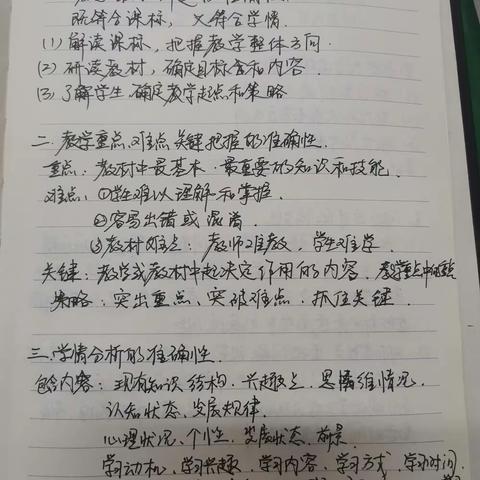 既符合课标，又符合学情.
(1) 解读课标，把握教学整体方向.
(2) 研读教材，确定目标含和内容.
(3) 了解学生，确定教学起点和策略
二. 教学重点、难点、关键把握的准确性.
重点：教材中最基本、最重要的知识和技能.
难点：①学生难以理解和掌握.
②容易出错或混淆.
③教材难点：教师难教，学生难学.
关键：教学或教材中起决定作用的内容.
策略：突出重点、突破难点、抓住关键.
三. 学情分析的准确性.
包含内容：现有知识结构、兴趣点、思维情况.
认知状态、发展规律.
心理状况、个性、发展状态、前景.
学习动机、学习兴趣、学习内容、学习方式、学习时间.